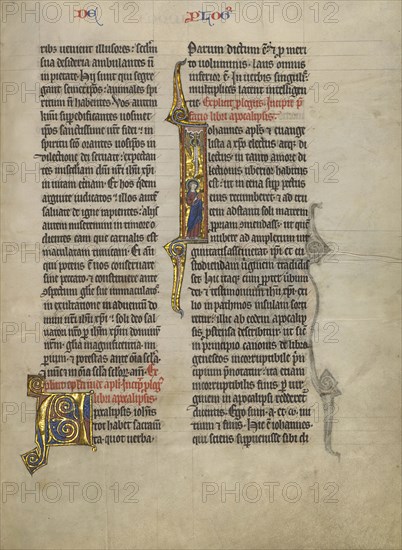 DE PLOG
ribus venient illusores: secundum
sua desideria ambulantes
in pietate. Hii sunt qui segre
gant semetipsos: animales spi
ritum non habentes. Vos autem
karissimi superedificantes vosmet
ipsos sanctissime vestre fidei: in
spiritu sancto orantes: vosipsos in
dilectione dei servate: expectan
tes misericordiam domini nostri ihu xpi
in vitam eternam. Et hos quidem
arguite iudicatos: illos autem
salvate de igne rapientes: aliis
autem miseremini in timore o
dientes eam que carnalis est
maculatam tunicam. Ei autem
qui potens est vos conservare
sine peccato: et constituere ante
conspectum glorie sue inmaculatos
in exultatione in adventu do
mini nostri ihu xpi: soli deo sal
vatori nostro per ihm xpm dominum
nostrum: gloria magnificentia im
perium et potestas ante omnia secula
et nunc et in omnia secula seculorum. amen. Ex
plicit epistola iude apli. Incipit plogus
libri apocalipsis.
Apocalipsis iohannis
tot habet sacramen
ta quot verba.
Parum dictum est et pro meri
to voluminis. laus omnis
inferior est. In verbis singulis
multiplices latent intelligen
tie. Explicit plogus. Incipit p
fatio libri apocalipsis.
Iohannes apls et evange
lista a xpo electus atque di
lectus: in tanto amore di
lectionis uberior habitus
est: ut in cena super pectus
eius recumberet: et ad cru
cem astanti soli matrem
propriam commendasset: ut quem
nubere ad amplexum vir
ginitatis asciverat ipsi et cu
stodiendam virginem tradidis
set. Hic itaque cum propter verbum
dei et testimonium ihu xpi exi
lio in pathmos insulam sorti
retur: illic ab eodem apocalip
sis preostensa describitur: ut si
cut in principio canonis id est libri
geneseos incorruptibile prin
cipium prenotatur: ita etiam
incorruptibilis finis per vir
ginem in apocalipsi redderetur
dicentis. Ego sum a et o. ini
tium et finis. Hic est iohannes
qui sciens supervenisse sibi di